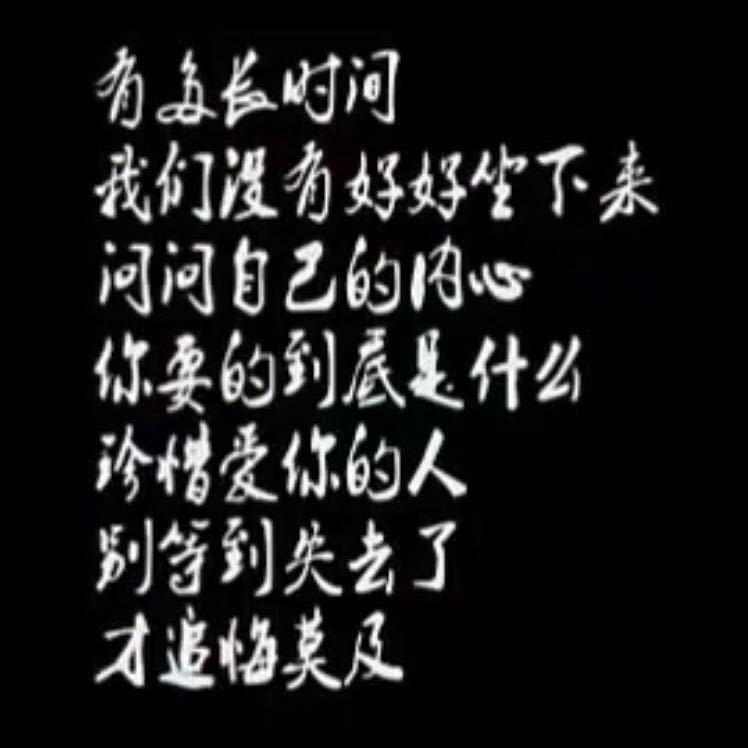 有多长时间
我们没有好好坐下来
问问自己的内心
你要的到底是什么
珍惜爱你的人
别等到失去了
才追悔莫及